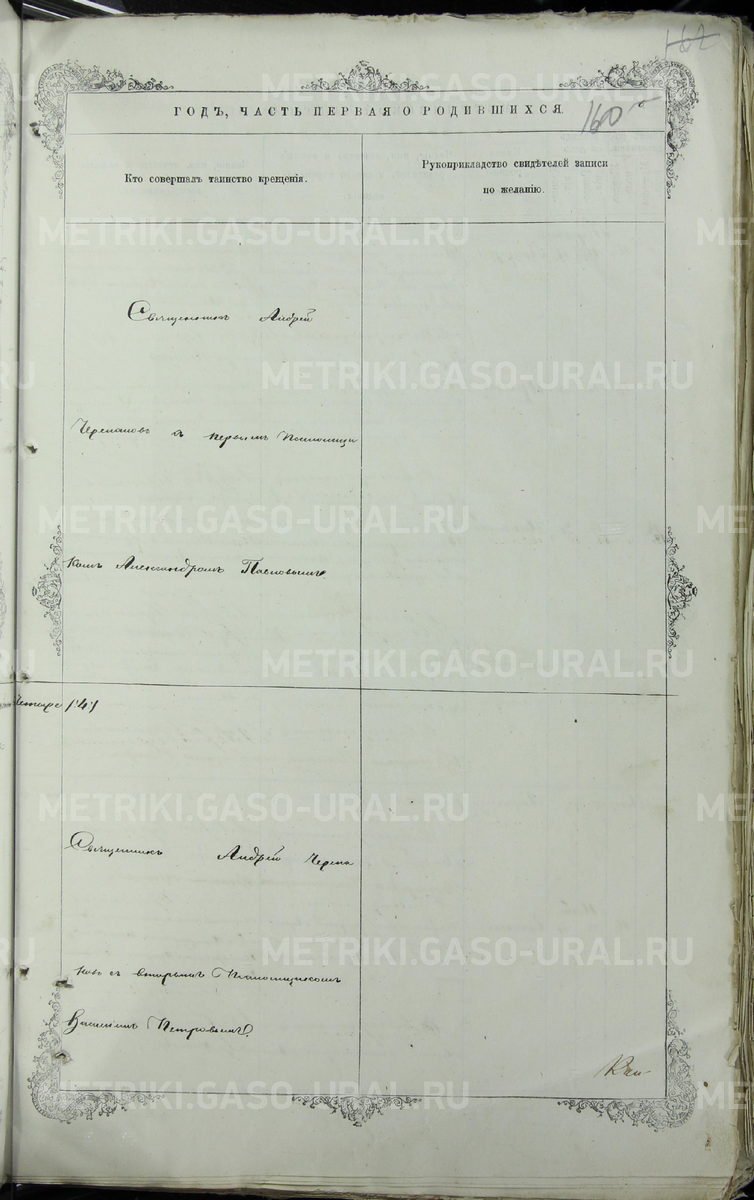 162
ГОДЪ, ЧАСТЬ ПЕРВАЯ О РОДИВШИХСЯ.
160
Кто совершалъ таинство крещенія.
Рукоприкладство свидѣтелей записи
по желанію.
Священникъ Андрей
Черепановъ съ первымъ Псаломщи
комъ Александромъ
четыре /4/
Священникъ Андрей Черепа
новъ съ вторымъ Псаломщикомъ
Василіемъ Петровымъ
METRIKI.GASO-URAL.RU